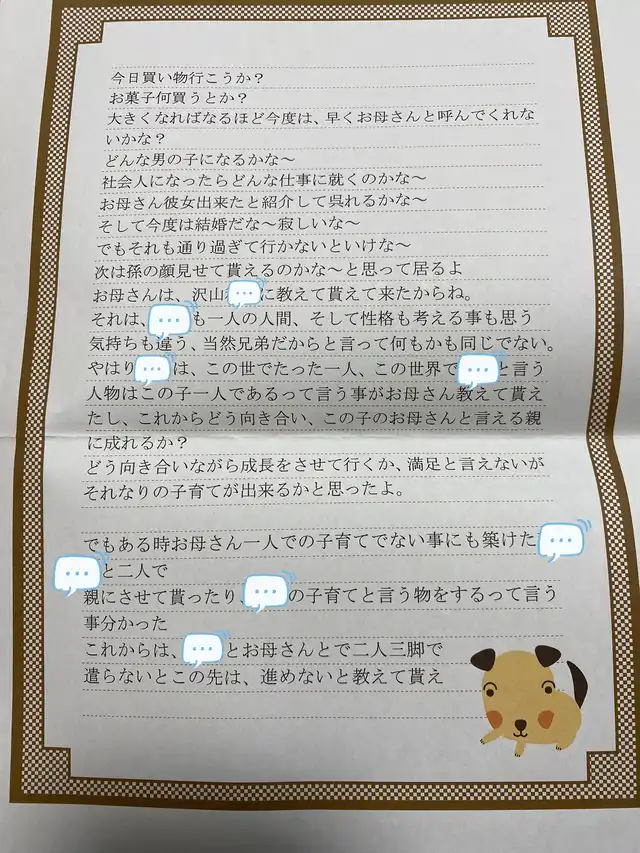 今日買い物行こうか？
お菓子何買うとか？
大きくなればなるほど今度は、早くお母さんと呼んでくれな
いかな？
どんな男の子になるかな～
社会人になったらどんな仕事に就くのかな～
お母さん彼女出来たと紹介して呉れるかな～
そして今度は結婚だな～寂しいな～
でもそれも通り過ぎて行かないといけな～
次は孫の顔見せて貰えるのかな～と思って居るよ
お母さんは、沢山に教えて貰えて来たからね。
それは、も一人の人間、そして性格も考える事も思う
気持ちも違う、当然兄弟だからと言って何もかも同じでない。
やはりは、この世でたった一人、この世界でと言う
人物はこの子一人であるって言う事がお母さん教えて貰え
たし、これからどう向き合い、この子のお母さんと言える親
に成れるか？
どう向き合いながら成長をさせて行くか、満足と言えないが
それなりの子育てが出来るかと思ったよ。
でもある時お母さん一人での子育てでない事にも築けた
と二人で
親にさせて貰ったり、の子育てと言う物をするって言う
事分かった
これからは、とお母さんとで二人三脚で
遣らないとこの先は、進めないと教えて貰え